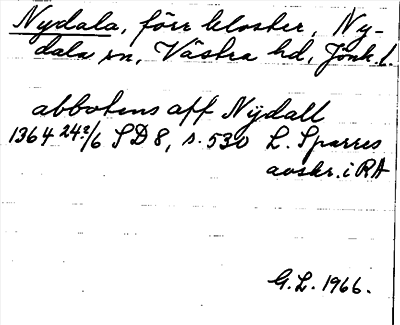 Nydala, förr kloster, Ny-
dala sn, Västra hd, Jönk. l.
abbotens aff Nÿdall
1364 24/6 SD 8, s. 530 L. Sparres
avskr. i RA
G.L. 1966.